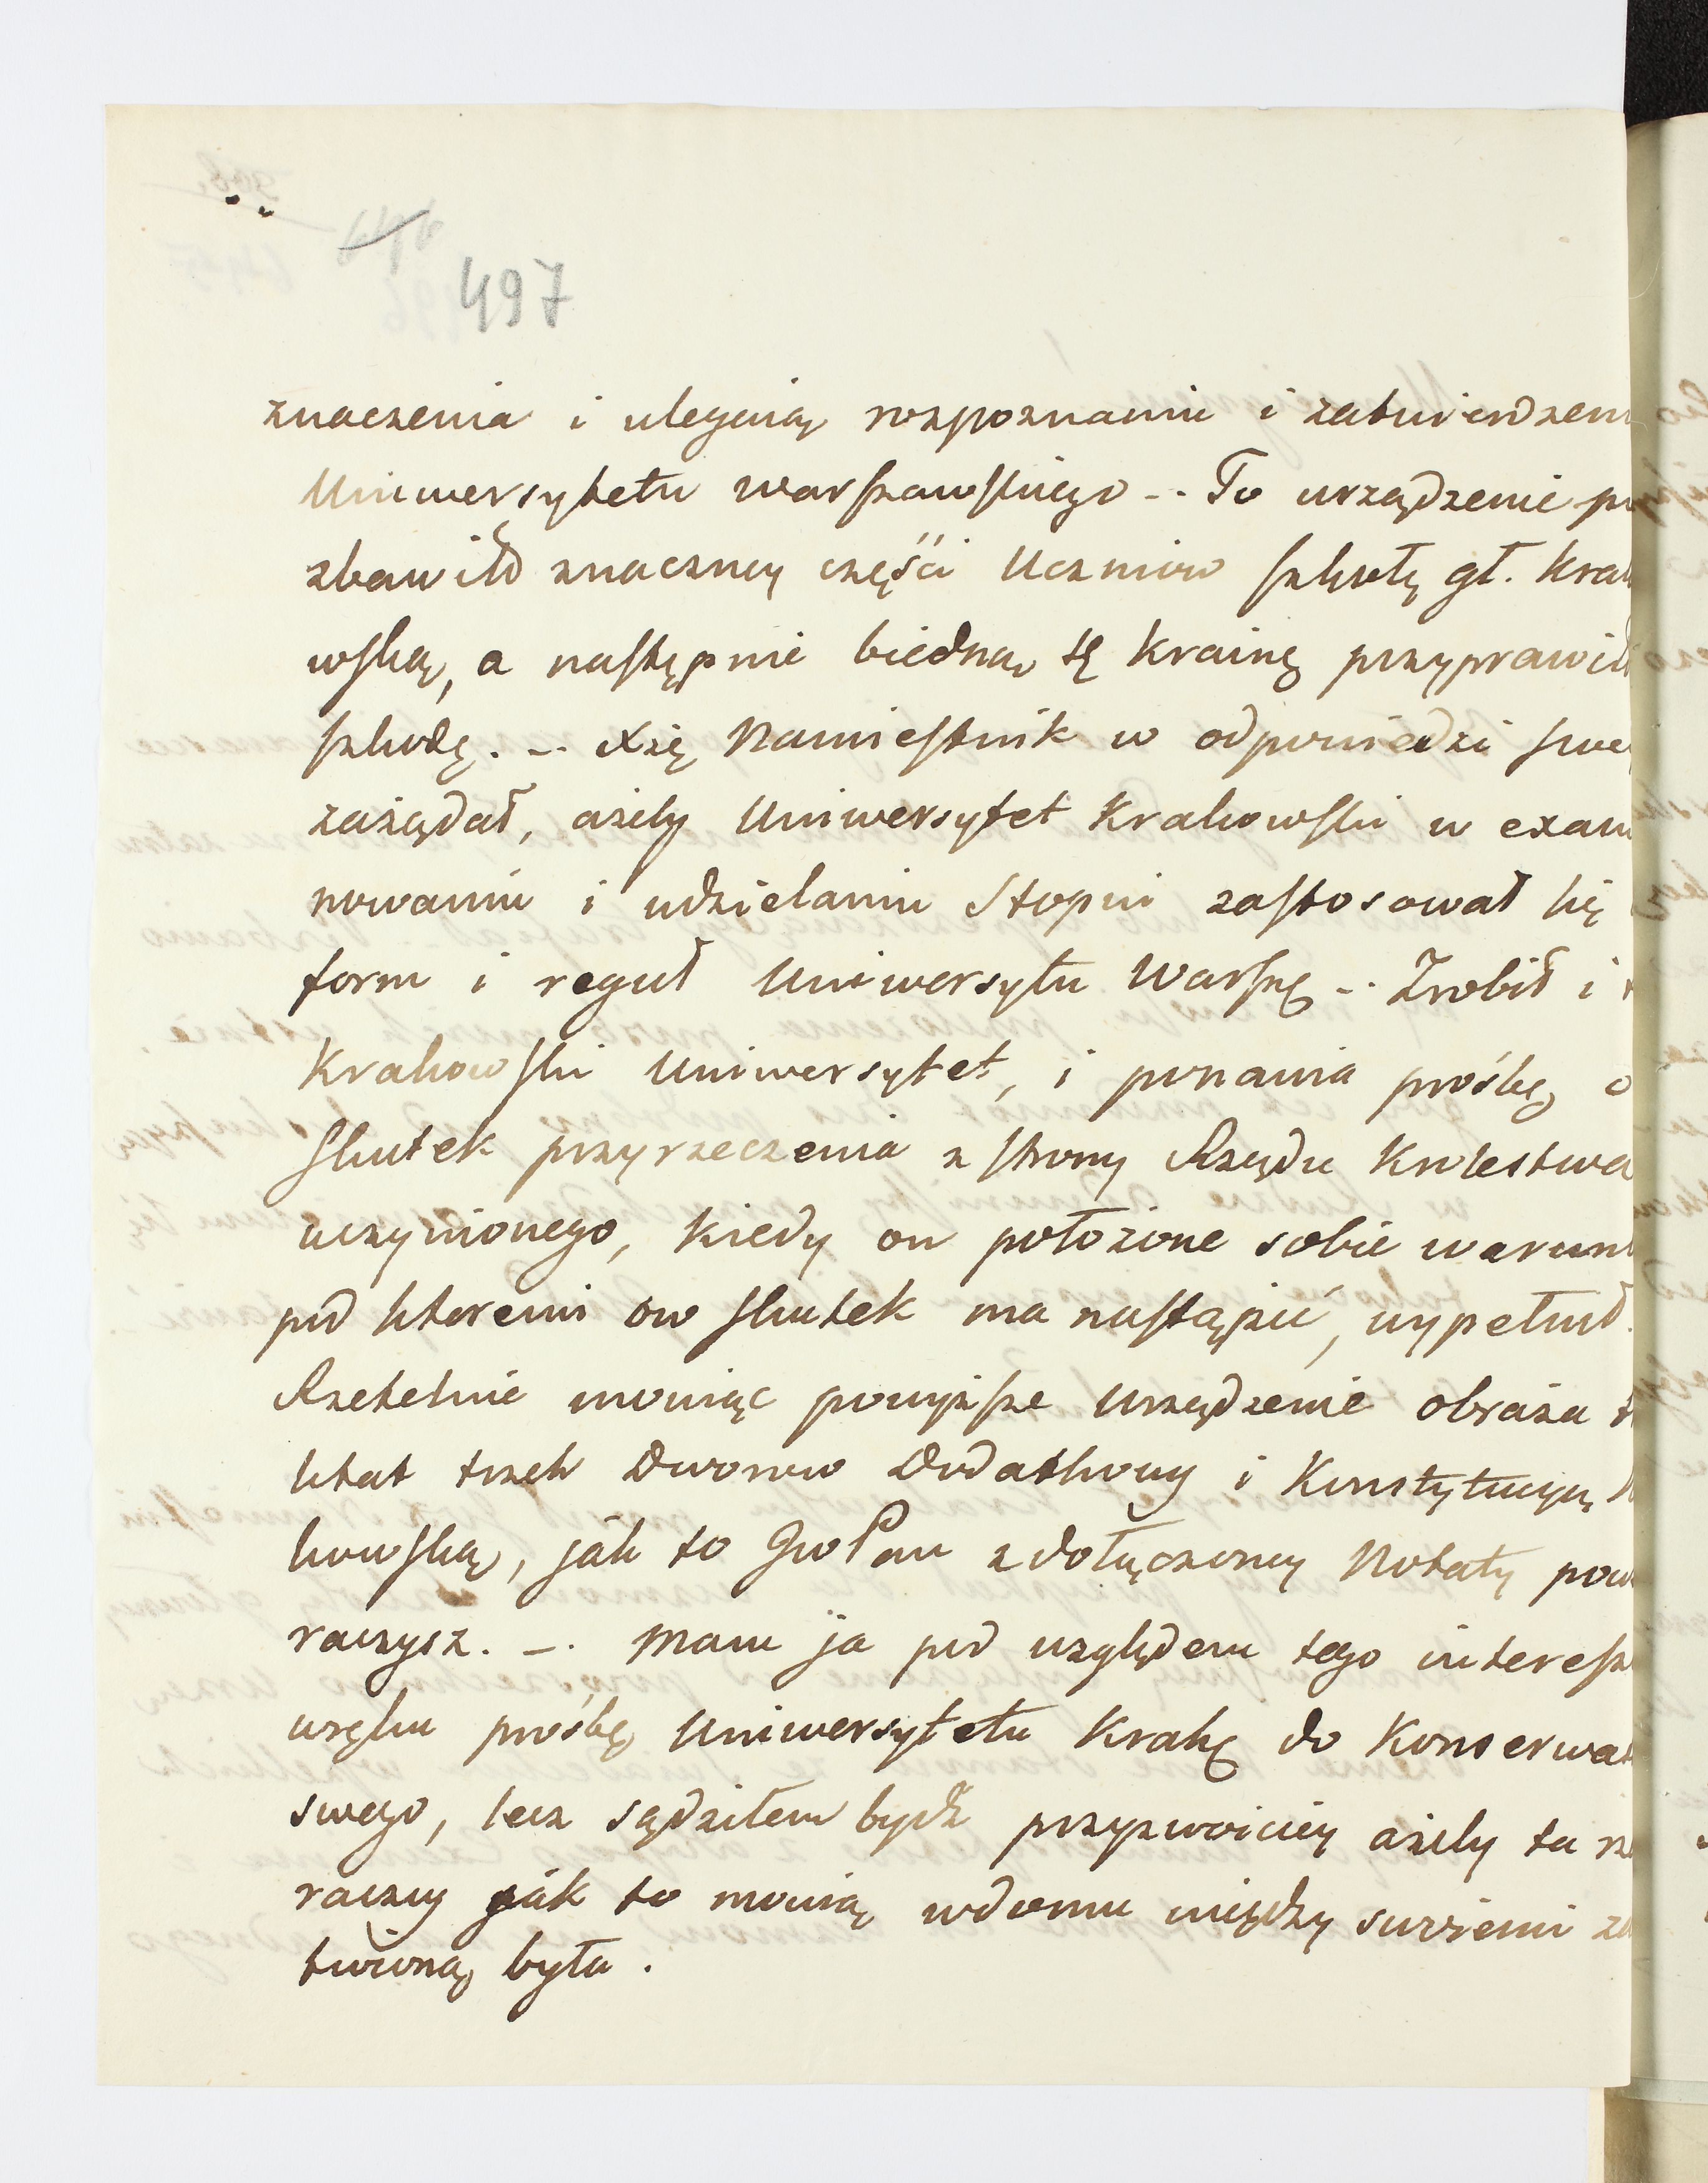 497
znaczenia i ulegaią rozpoznaniu i zatwierdzeni
Uniwersytetu warszawskiego -. To urządzenie po
zbawiło znaczney części Uczniow szkołę gł. Krak
wską, a następnie biedną tę Krainę przyprawiło
szkodę. -. Xżę Namiestnik w odpowiedzi swey
zażądał, ażeby Uniwersytet Krakowski w exami
nowaniu i udzielaniu Stopni zastosował się
form i reguł Uniwersytu Warszgo -. Zrobił i
Krakowski Uniwersytet, i ponawia prośbę o
Skutek przyrzeczenia z strony Rządu Krolestwa
uczynionego, kiedy on położone sobie warunk
pod ktoremi ow skutek ma nastąpić, wypełnił.
Rzetelnie mowiąc powyższe Urządzenie obraża t
ktat trzech Dworow Dodatkowy i Konstytucyą
kowską, ják to JWoPan z dołączoney Notaty pow
raczysz. -. Mam ja pod względem tego interess
w ręku prośbę Uniwersytetu Krakgo do Konserwat
swego, lecz sądziłem bydź przyzwoiciey ażeby ta rz
raczey ják to mowią w domu między swoiemi za
twioną była.